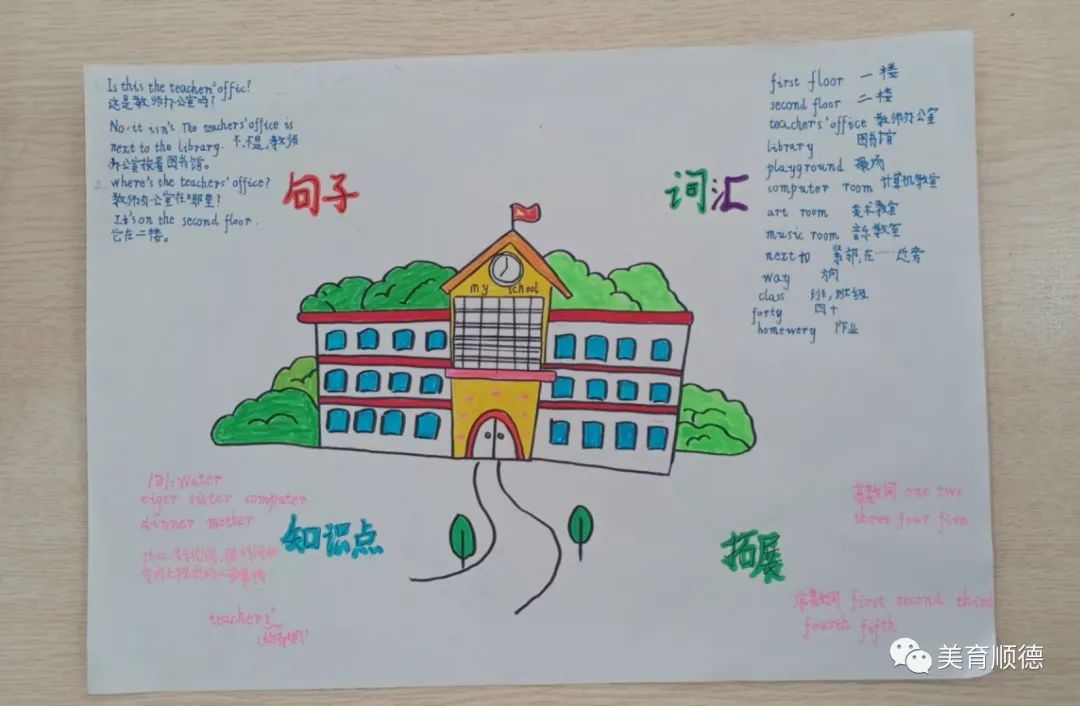 Is this the teachers' offic?
这是教师办公室吗?
No, it isn't The teachers' office is
next to the library. 不,不是,教师
办公室挨着图书馆。
where's the teachers' office?
教师办公室在哪里?
It's on the second floor.
它在二楼。
句子
词汇
first floor 一楼
second floor 二楼
teachers' office 教师办公室
library 图书馆
playground 操场
computer room 计算机教室
art room 美术教室
music room 音乐教室
next to 紧邻,在…近旁
way 方向
class 班,班级
forty 四十
homewory 作业
my school
/ə/: water
tiger sister computer
dinner mother
知识点
teachers'
拓展
基数词 one two
three four five
序数词 first second third
fourth fifth
美育顺德